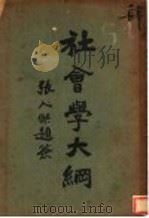 社會學大綱
張人傑題簽